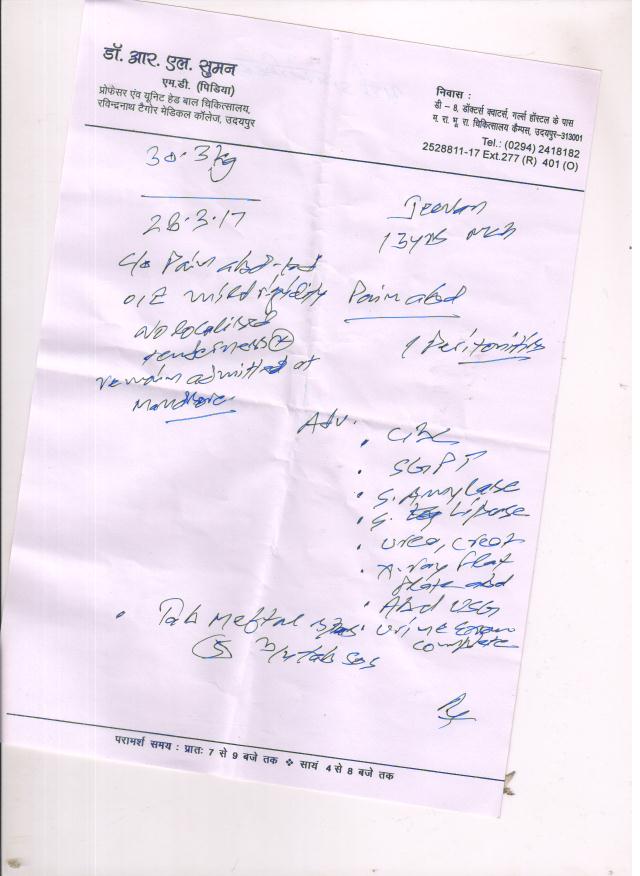 डॉ. आर. एल. सुमन
एम.डी. (पिडिया)
प्रोफेसर एंव यूनिट हेड बाल चिकित्सालय,
रविन्द्रनाथ टैगोर मेडिकल कॉलेज, उदयपुर
निवास :
डी - 8, डॉक्टर्स क्वाटर्स, गर्ल्स हॉस्टल के पास
म. रा. भू. रा. चिकित्सालय कैम्पस, उदयपुर-313001
Tel.: (0294) 2418182
2528811-17 Ext.277 (R) 401 (O)
30.3 kg
28.3.17
Jeevan
13 yrs
c/o Pain abd
O/E mild rigidity
No localised
tenderness
remain admitted at
Pain abd
? Peritonitis
Adv.
• CBC
• SGPT
• S. Amylase
• S. Lipase
• Urea, Creat
• X-ray flat
plate abd
• Abd USG
• Urine Exam
complete
• Tab Meftal spas
(5) 3/4 tab sos
परामर्श समय : प्रातः 7 से 9 बजे तक ❖ सायं 4 से 8 बजे तक